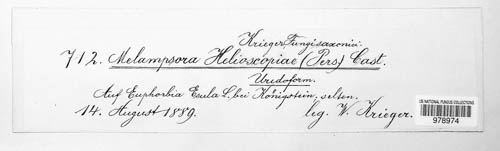 Krieger, Fungi saxonici.
712. Melampsora Helioscopiae (Pers) Cast.
Uredoform.
Auf Euphorbia Esula L. bei Königstein, selten.
14. August 1889. leg. W. Krieger.
US NATIONAL FUNGUS COLLECTIONS
978974